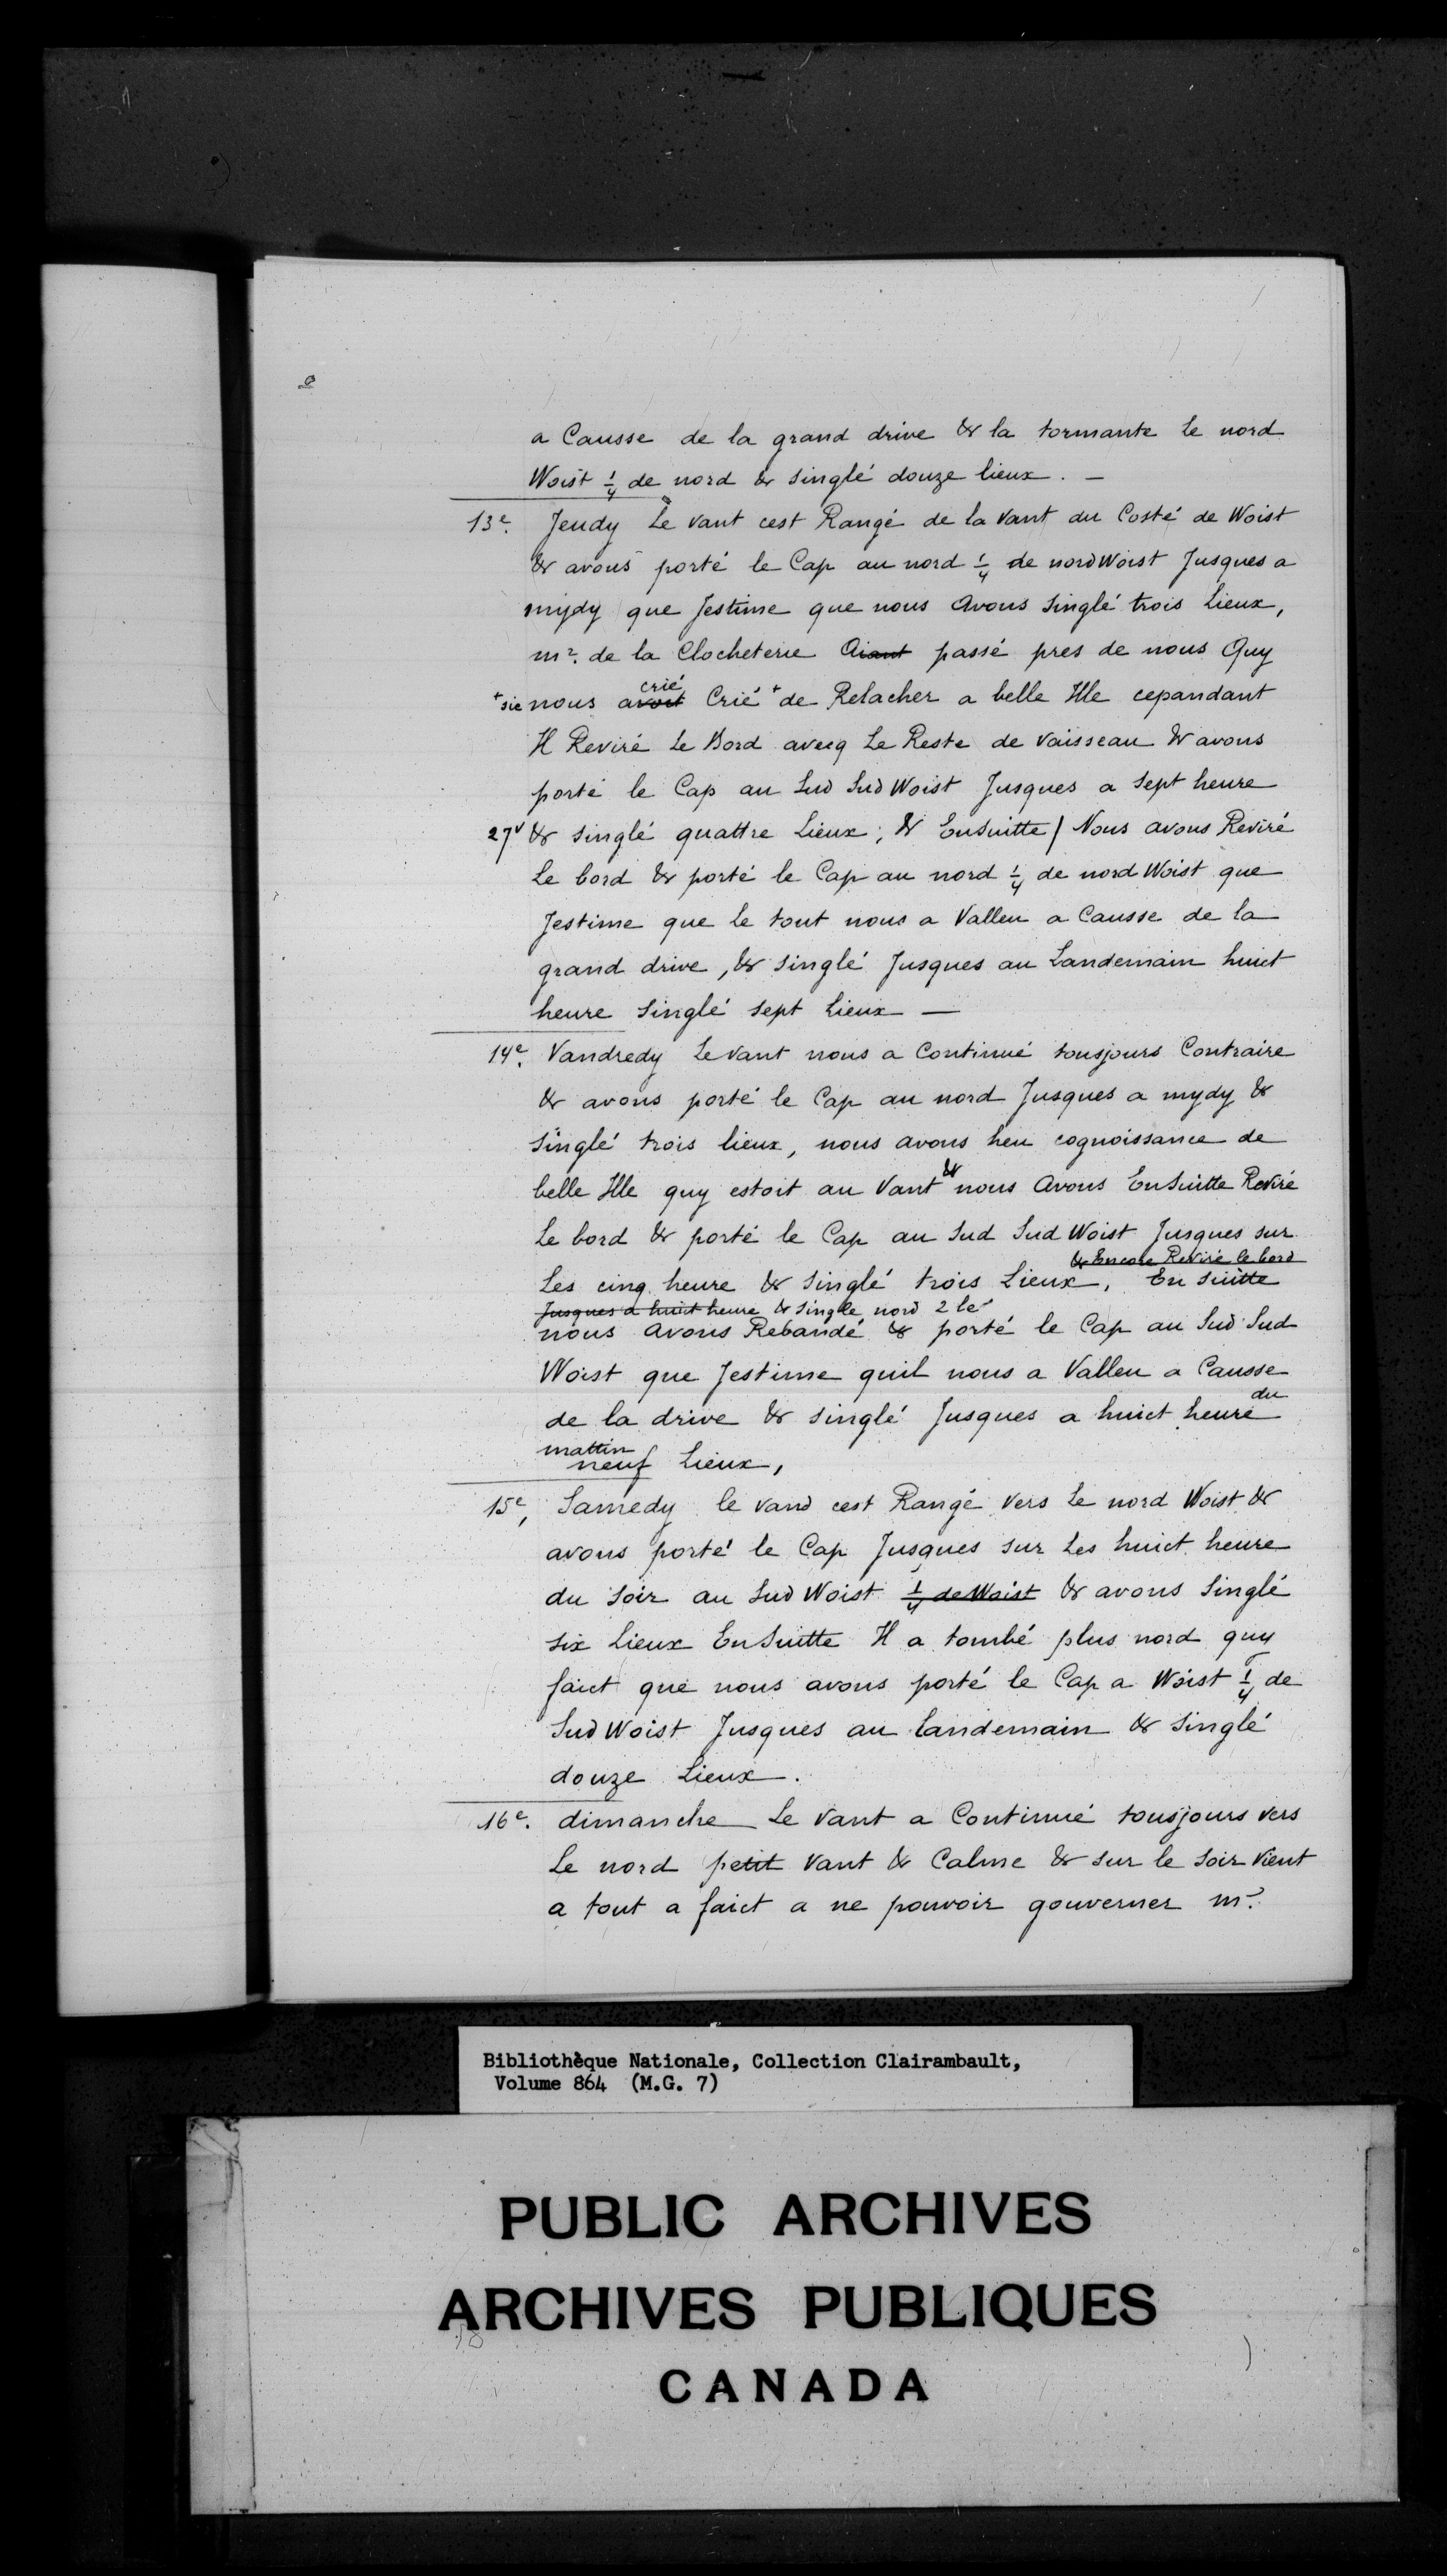 a Causse de la grand drive & la tormante le nord
Woist 1/4 de nord & singlé douze lieux. —
13e. Jeudy Le vant cest Rangé de la vant du Costé de Woist
& avous porté le Cap au nord 1/4 de nord Woist Jusques a
mydy que Jestime que nous Avons singlé trois Lieux,
mr. de la Clocheterie Aiant passé pres de nous Quy
+sic nous avoit crié Crié + de Relacher a belle Ille cepandant
Il Reviré Le Bord avecq Le Reste de vaisseau & avons
porté le Cap au Sud Sud Woist Jusques a Sept heure
27v & singlé quattre Lieux; & EnSuitte / Nous avons Reviré
Le bord & porté le Cap au nord 1/4 de nord Woist que
Jestime que Le tout nous a Valleu a Causse de la
grand drive, & singlé Jusques au Landemain huict
heure singlé sept Lieux —
14e. Vandredy Le vant nous a Continué tousjours Contraire
& avons porté le Cap au nord Jusques a mydy &
singlé trois lieux, nous avons heu cognoissance de
belle Ille quy estoit au Vant & nous Avons EnSuitte Reviré
Le bord & porté le Cap au Sud Sud Woist Jusques sur
& Encore Reviré le bord
Les cinq heure & singlé trois Lieux, En Suitte
Jusques a huit heure & singlé nord 2 le
nous avons Rebandé & porté le Cap au Sud Sud
Woist que Jestime quil nous a Valleu a Causse
de la drive & singlé Jusques a huict heure du
mattin
neuf Lieux,
15e, Samedy le vand cest Rangé vers Le nord Woist &
avons porté le Cap Jusques sur Les huict heure
du Soir au Sud Woist 1/4 de Woist & avons Singlé
Six Lieux EnSuitte Il a tombé plus nord quy
faict que nous avons porté le Cap a Woist 1/4 de
Sud Woist Jusques au landemain & singlé
douze Lieux.
16e. dimanche Le vant a Continué tousjours vers
Le nord petit vant & Calme & sur le Soir vient
a tout a faict a ne pouvoir gouverner mr.
Bibliothèque Nationale, Collection Clairambault,
Volume 864 (M.G. 7)
PUBLIC ARCHIVES
ARCHIVES PUBLIQUES
CANADA